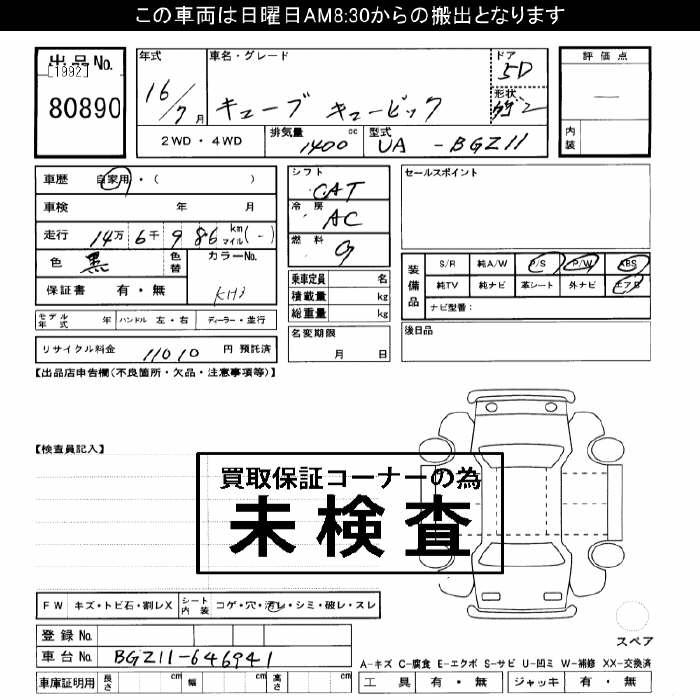 この車両は日曜日AM8:30からの搬出となります
出品No. [1992] 80890
年式 16/7月
車名・グレード キューブ キュービック
ドア 5D
形状
評価点 —
内装
2WD・4WD
排気量 1400 cc
型式 UA - BGZ11
車歴 自家用・( )
車検 年 月
走行 14万 6千 9 86 km マイル (-)
色 黒 色替
カラーNo. KH3
保証書 有・無
モデル年式 年 ハンドル 左・右 ディーラー・並行
リサイクル料金 11010 円 預託済
シフト CAT
冷房 AC
燃料 G
乗車定員 名
積載量 kg
総重量 kg
名変期限 月 日
セールスポイント
装備品 S/R 純A/W P/S P/W ABS
純TV 純ナビ 革シート 外ナビ エアB
ナビ型番:
後日品
【出品店申告欄(不良箇所・欠品・注意事項等)】
【検査員記入】
買取保証コーナーの為
未検査
FW キズ・トビ石・割レX シート内装 コゲ・穴・汚レ・シミ・破レ・スレ
登録No.
車台No. BGZ11-646941
車庫証明用 長さ cm 幅 cm 高さ cm
スペア
A-キズ C-腐食 E-エクボ S-サビ U-凹ミ W-補修 XX-交換済
工具 有・無 ジャッキ 有・無